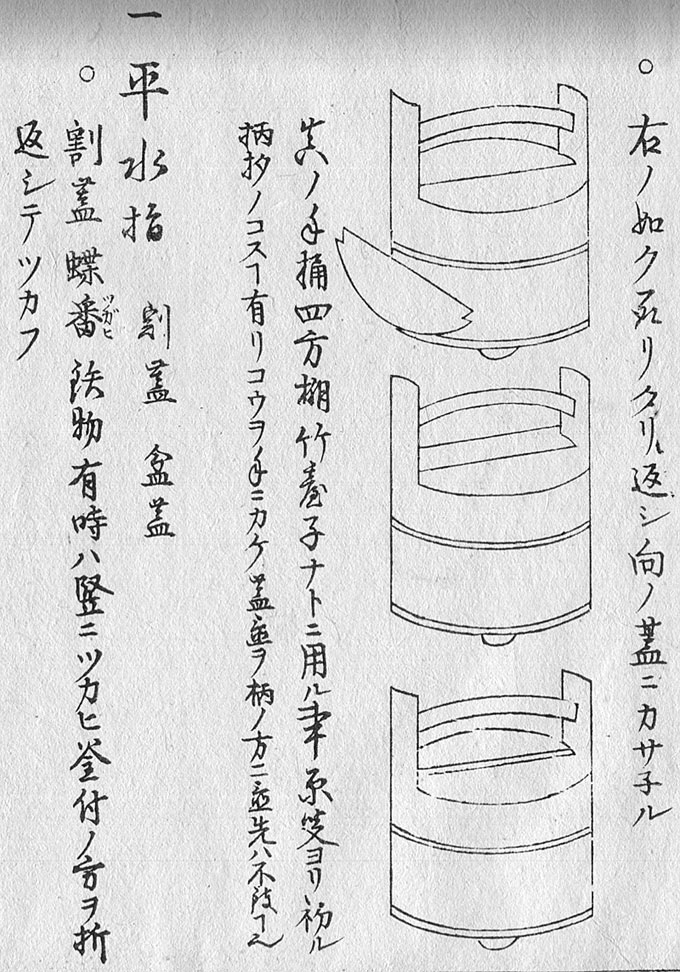 ○ 右ノ如クリクリ返シ向ノ蓋ニカサ子ル
真ノ手桶四方棚竹臺子ナトニ用ル事原叟ヨリ初ル
柄杓ノコスヿ有リコウヲ手ニカケ蓋置ヲ柄ノ方ニ置先ハ不ヿ也
一 平水指 割蓋 盆蓋
○ 割蓋蝶番ツガヒ鉄物有時ハ竪ニツカヒ釜付ノ方ヲ折
返シテツカフ